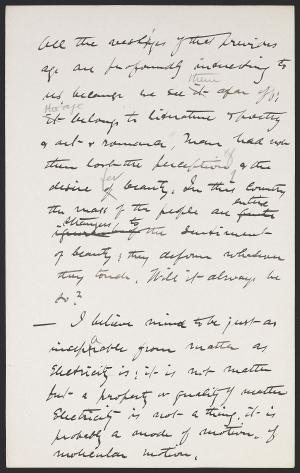 All the vestiges of the previous
age are profoundly interesting to
us because we see it afar off;
them
Ho'age
It belongs to literature & poetry
& art & romance. Man had not
then lost the perception of & the
desire for beauty. In this country
the mass of the people are entire
strangers to
the sentiment
of beauty; they deform whatever
they touch. Will it always be
so?
— I believe mind to be just as
inseparable from matter as
Electricity is; it is not matter
but a property or quality of matter
Electricity is not a thing, it is
probably a mode of motion, of
molecular motion.